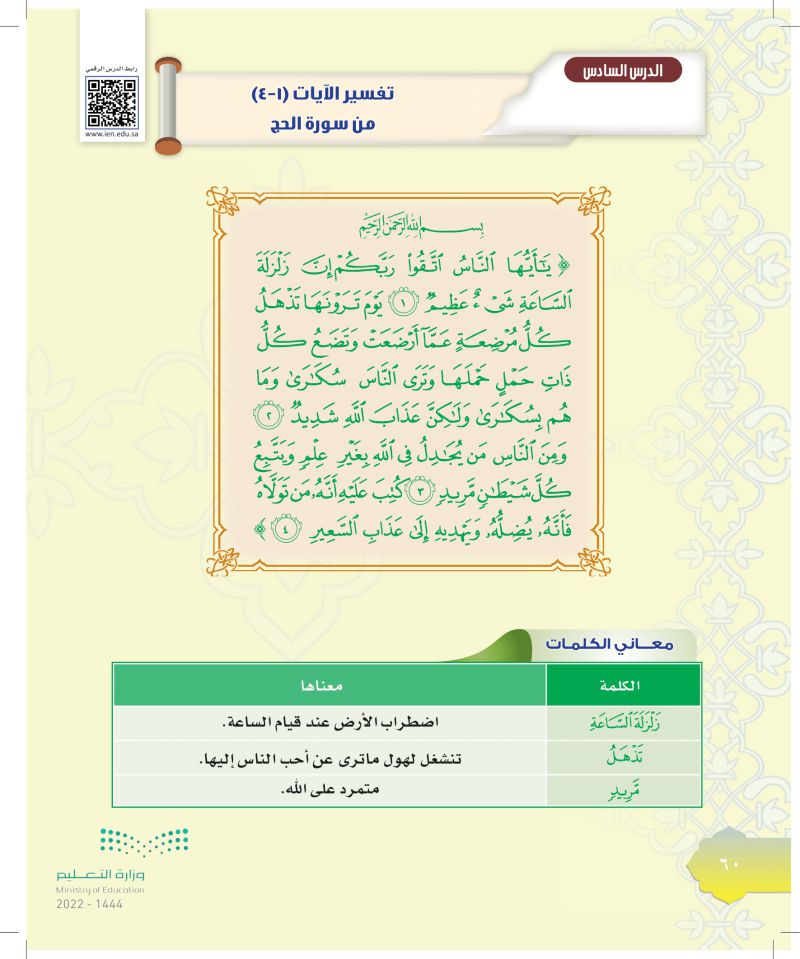 رابط الدرس الرقمي
www.ien.edu.sa
الدرس السادس
تفسير الآيات (١-٤)
من سورة الحج
بِسْمِ اللَّهِ الرَّحْمَٰنِ الرَّحِيمِ
﴿ يَٰٓأَيُّهَا ٱلنَّاسُ ٱتَّقُوا۟ رَبَّكُمْ إِنَّ زَلْزَلَةَ
ٱلسَّاعَةِ شَىْءٌ عَظِيمٌ ١ يَوْمَ تَرَوْنَهَا تَذْهَلُ
كُلُّ مُرْضِعَةٍ عَمَّآ أَرْضَعَتْ وَتَضَعُ كُلُّ
ذَاتِ حَمْلٍ حَمْلَهَا وَتَرَى ٱلنَّاسَ سُكَٰرَىٰ وَمَا
هُم بِسُكَٰرَىٰ وَلَٰكِنَّ عَذَابَ ٱللَّهِ شَدِيدٌ ٢
وَمِنَ ٱلنَّاسِ مَن يُجَٰدِلُ فِى ٱللَّهِ بِغَيْرِ عِلْمٍ وَيَتَّبِعُ
كُلَّ شَيْطَٰنٍ مَّرِيدٍ ٣ كُتِبَ عَلَيْهِ أَنَّهُۥ مَن تَوَلَّاهُ
فَأَنَّهُۥ يُضِلُّهُۥ وَيَهْدِيهِ إِلَىٰ عَذَابِ ٱلسَّعِيرِ ٤ ﴾
معـــاني الكلمـات
الكلمة معناها
زَلْزَلَةَ ٱلسَّاعَةِ اضطراب الأرض عند قيام الساعة.
تَذْهَلُ تنشغل لهول ماترى عن أحب الناس إليها.
مَّرِيدٍ متمرد على الله.
٦٠
وزارة التعـليم
Ministry of Education
2022 - 1444